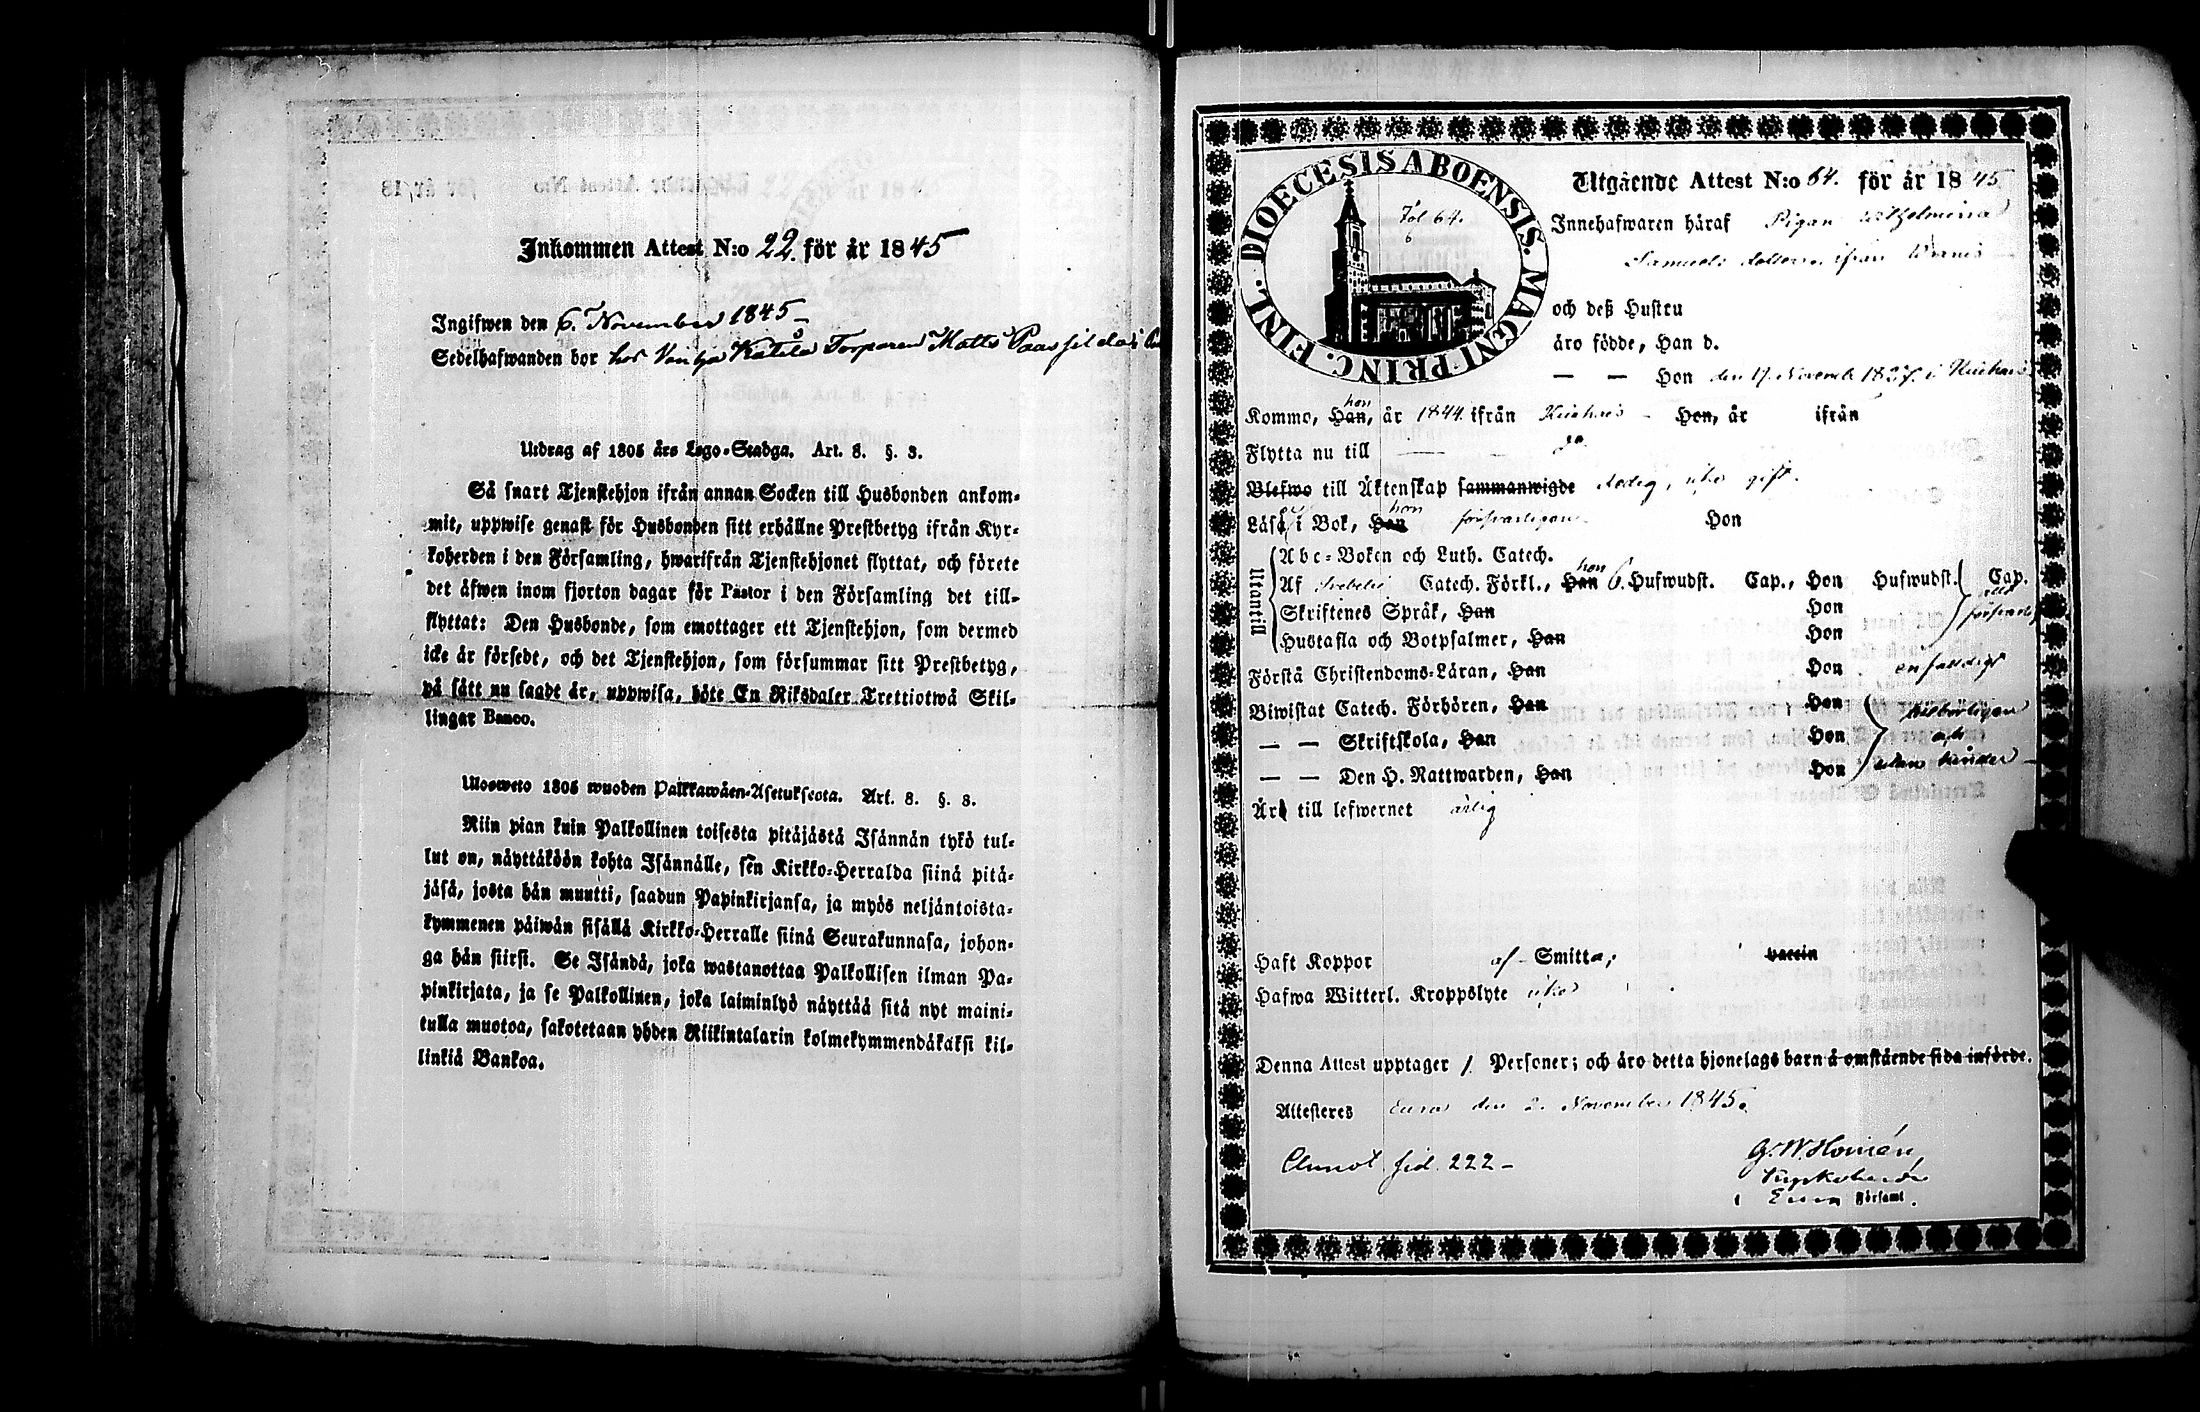 Inkommen Attest N:o 22. för år 1845
Ingifwen den 6. November 1845 –
Sedelhafwanden bor hos Torparen Matts
Utdrag af 1805 års Lego-Stadga. Art. 8. §. 3.
Så snart Tjenstehjon ifrån annan Socken till Husbonden ankom-
mit, uppwise genast för Husbonden sitt erhållne Prestbetyg ifrån Kyr-
koherden i den Församling, hwarifrån Tjenstehjonet flyttat, och förete
det äfwen inom fjorton dagar för Pastor i den Församling det till-
flyttat: Den Husbonde, som emottager ett Tjenstehjon, som dermed
icke är försedt, och det Tjenstehjon, som försummar sitt Prestbetyg,
på sätt nu sagdt är, uppwisa, böte En Riksdaler Trettiotwå Skil-
lingar Banco.
Ulosweto 1805 wuoden Palkkawäen-Asetuksesta. Art. 8. §. 3.
Niin pian kuin Palkollinen toisesta pitäjästä Isännän tykö tul-
lut on, näyttäköön kohta Isännälle, sen Kirkko-Herralda siinä pitä-
jäsä, josta hän muutti, saadun Papinkirjansa, ja myös neljäntoista-
kymmenen päiwän sisällä Kirkko-Herralle siinä Seurakunnasa, johon-
ga hän siirsi. Se Isändä, joka wastanottaa Palkollisen ilman Pa-
pinkirjata, ja se Palkollinen, joka laiminlyö näyttää sitä nyt maini-
tulla muotoa, sakotetaan yhden Riikintalarin kolmekymmendäkaksi kil-
linkiä Bankoa.
DIOECESIS ABOENSIS. MAGNI PRINC. FINL.
Fol 64.
Utgående Attest N:o 64. för år 1845
Innehafwaren häraf Pigan Wilhelmina
Samuels dotter ifrån
och deß Hustru
äro födde, Han d.
— — Hon den 17. Novemb 1827. i Kiukais
Kommo, Han, hon år 1844. ifrån Kiukais – Hon, år ifrån
Flytta nu till —— – do
Blefwo till Äktenskap sammanwigde ledig, icke gift.
Läsa i Bok, Han hon försvarligen Hon
Utantill
Abc-Boken och Luth. Catech.
Af Svebelii Catech. Förkl., Han hon 6. Hufwudst. Cap., Hon Hufwudst. Cap.
Skriftenes Språk, Han Hon
Hustafla och Botpsalmer, Han Hon
Förstå Christendoms-Läran, Han Hon enfaldigt
Biwistat Catech. Förhören, Han Hon
— — Skriftskola, Han Hon
— — Den H. Nattwarden, Han Hon
Äro till lefwernet ärlig
Haft Koppor af Smitta, vaccin
Hafwa Witterl. Kroppslyte icke
Denna Attest upptager 1. Personer; och äro detta hjonelags barn å omstående sida införde.
Attesteres Eura den 2. November 1845.
sid. 222 –
G. W. Homén,
Kyrkoherde
i Eura Församl.